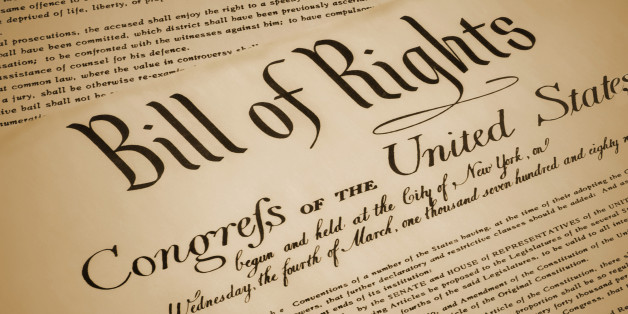 same offence to
deprived of life, liberty, or prope
prosecutions, the accused shall enjoy the right to a speedy
shall have been committed, which district shall have been previously ascertain
to be confronted with the witnesses against him; to have compulsory
assistance of counsel for his defence.
common law, where the value in controversy shall
a jury, shall be otherwise re-exam
bail shall not be
Bill of Rights
Congreſs OF THE United States
begun and held at the City of New York, on
Wednesday, the fourth of March, one thousand seven hundred and eighty n
Conventions of a number of the States having, at the time of their adopting the C
that further declaratory and restrictive clauses should be added: And as
ends of its institution:
by the SENATE and HOUSE of REPRESENTATIVES of the UNITED
Articles be proposed to the Legislatures of the several S
fourths of the said Legislatures, to be valid to all inten
and Amendment of the Constitution of the Uni
of the Original Constitution.
Article of the Constitution, there
shall be so regula